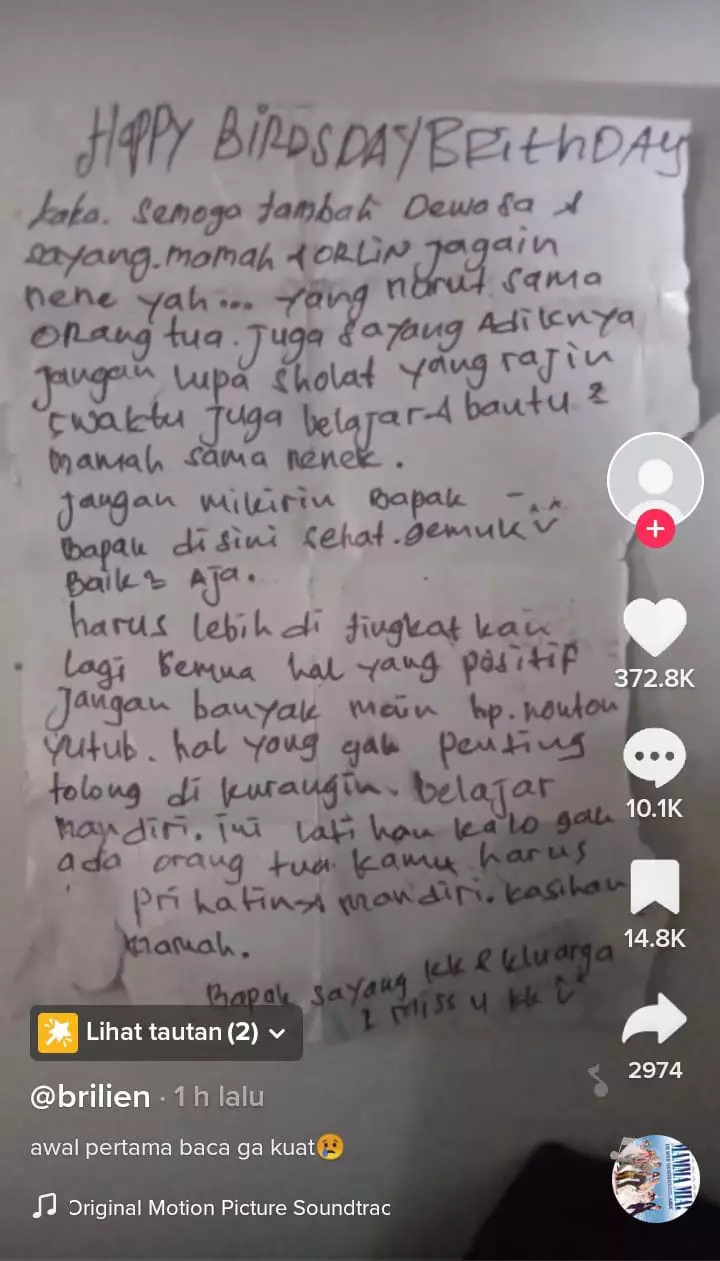 HAPPY BIRDSDAY BRithDAY
kaka. semoga tambah Dewasa &
sayang.mamah & ORLIN jagain
nene yah... yang nurut sama
orang tua. juga sayang Adiknya
jangan lupa sholat yang rajin
5waktu juga belajar & bantu 2
mamah sama nenek.
jangan mikirin Bapak -
Bapak disini sehat.gemuk
Baik2 Aja.
harus lebih di tingkat kan
lagi semua hal yang positif
Jangan banyak main hp.nonton
yutub. hal yang gak penting
tolong di kurangin. belajar
mandiri. ini lati han kalo gak
ada orang tua kamu harus
pri hatin & mandiri. kasihan
mamah.
Bapak sayang kk & kluarga
I miss u kk
372.8K
10.1K
14.8K
2974
Lihat tautan (2)
@brilien · 1 h lalu
awal pertama baca ga kuat😢
Original Motion Picture Soundtrac